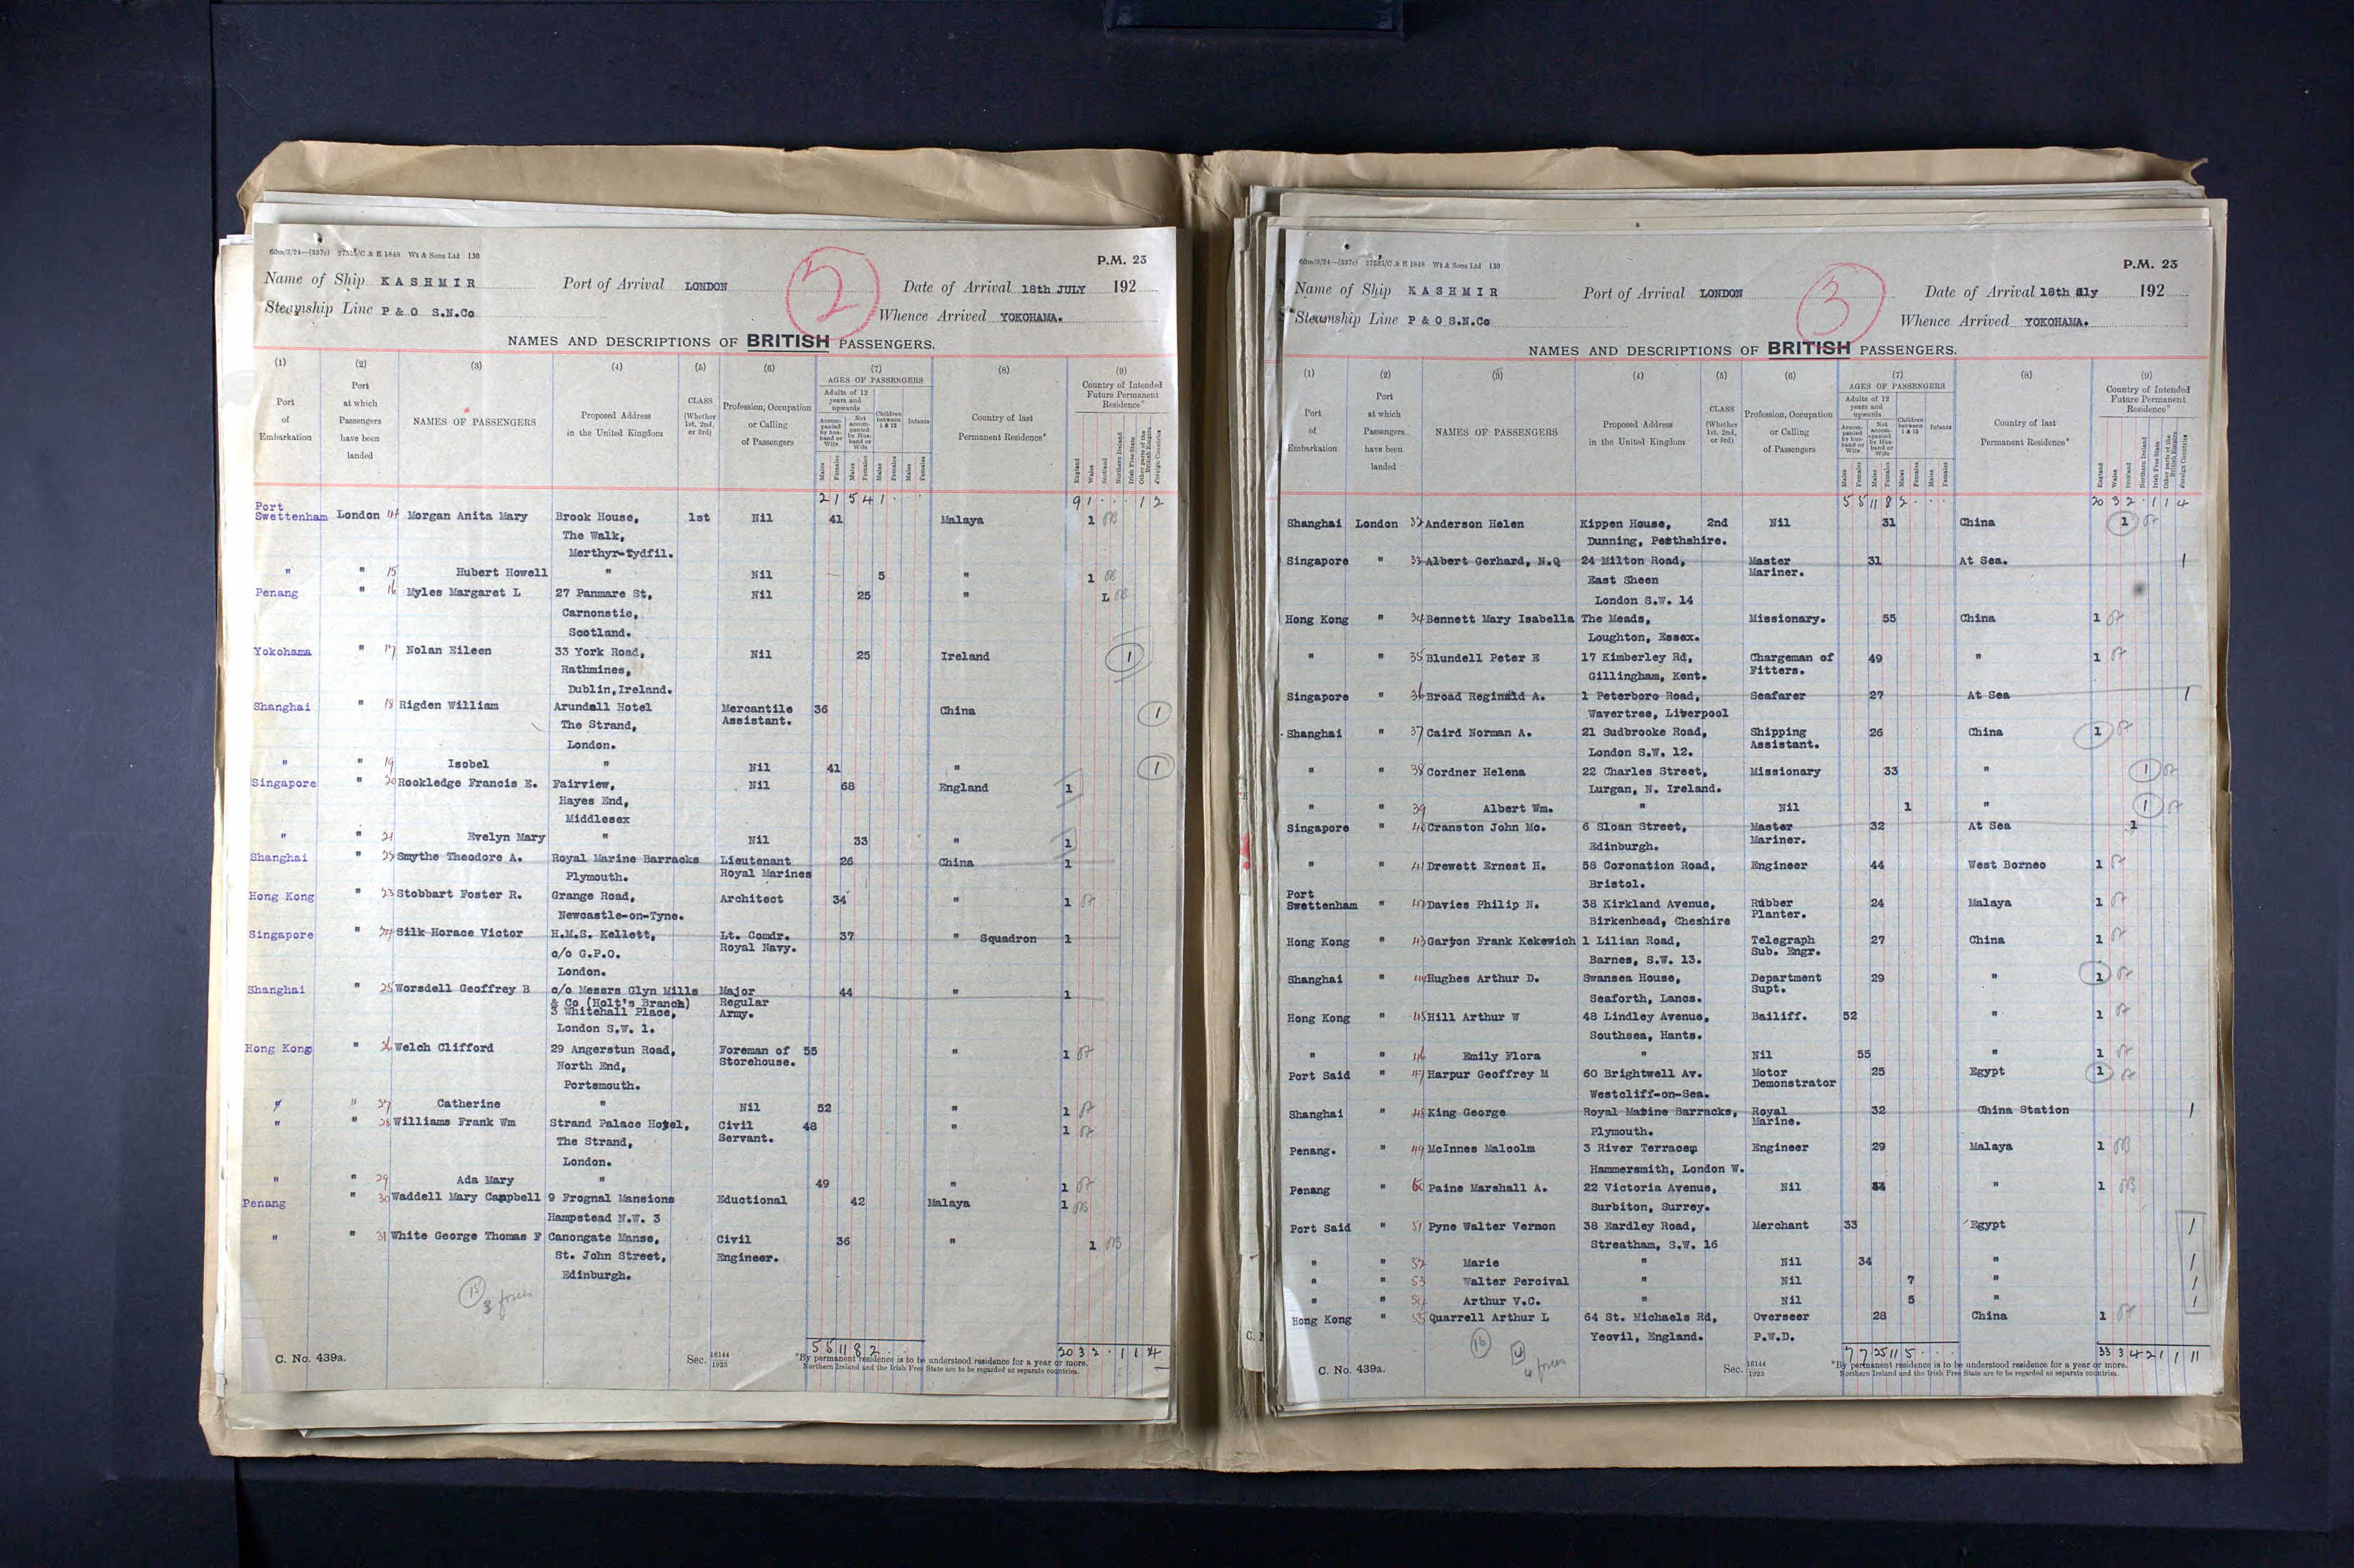 60m/3/24—(537c) 27525/C & E 1848 Wt & Sons Ltd 130
P.M. 23
Name of Ship KASHMIR Port of Arrival LONDON 2 Date of Arrival 18th JULY 192
Steamship Line P & O S.N.Co Whence Arrived YOKOHAMA.
NAMES AND DESCRIPTIONS OF BRITISH PASSENGERS.
(1) (2) (3) (4) (5) (6) (7) (8) (9)
Port of Embarkation
Port at which Passengers have been landed
NAMES OF PASSENGERS
Proposed Address in the United Kingdom
CLASS (Whether 1st, 2nd, or 3rd)
Profession, Occupation or Calling of Passengers
AGES OF PASSENGERS
Adults of 12 years and upwards
Accompanied by husband or Wife
Not accompanied by Husband or Wife
Children between 1 & 12
Infants
Males Females Males Females Males Females Males Females
Country of last Permanent Residence*
Country of Intended Future Permanent Residence*
England Wales Scotland Northern Ireland Irish Free State Other parts of the British Empire Foreign Countries
2 1 5 4 1 . . . 9 1 . . . 1 2
Port
Swettenham London 14 Morgan Anita Mary Brook House, 1st Nil 41 Malaya 1
The Walk,
Merthyr-Tydfil.
" " 15 Hubert Howell " Nil 5 " 1
Penang " 16 Myles Margaret L 27 Panmare St, Nil 25 " L
Carnonstie,
Scotland.
Yokohama " 17 Nolan Eileen 33 York Road, Nil 25 Ireland 1
Rathmines,
Dublin,Ireland.
Shanghai " 18 Rigden William Arundall Hotel Mercantile 36 China 1
The Strand, Assistant.
London.
" " 19 Isobel " Nil 41 " 1
Singapore " 20 Rookledge Francis E. Fairview, Nil 68 England 1
Hayes End,
Middlesex
" " 21 Evelyn Mary " Nil 33 " 1
Shanghai " Smythe Theodore A. Royal Marine Barracks Lieutenant 26 China 1
Plymouth. Royal Marines
Hong Kong " 23 Stobbart Foster R. Grange Road, Architect 34 " 1
Newcastle-on-Tyne.
Singapore " 24 Silk Horace Victor H.M.S. Kellett, Lt. Comdr. 37 " Squadron 1
c/o G.P.O. Royal Navy.
London.
Shanghai " 25 Worsdell Geoffrey B c/o Messrs Glyn Mills Major 44 " 1
& Co (Holt's Branch) Regular
3 Whitehall Place, Army.
London S.W. 1.
Hong Kong " 26 Welch Clifford 29 Angerstun Road, Foreman of 55 " 1
North End, Storehouse.
Portsmouth.
" " 27 Catherine " Nil 52 " 1
" " 28 Williams Frank Wm Strand Palace Hotel, Civil 48 " 1
The Strand, Servant.
London.
" " 29 Ada Mary " 49 " 1
Penang " 30 Waddell Mary Campbell 9 Frognal Mansions Eductional 42 Malaya 1
Hampstead N.W. 3
" " 31 White George Thomas F Canongate Manse, Civil 36 " 1
St. John Street, Engineer.
Edinburgh.
15
3 forces
5 5 11 8 2 . . . 20 3 2 . 1 1 4
C. No. 439a. Sec. 16144/1923
*By permanent residence is to be understood residence for a year or more.
Northern Ireland and the Irish Free State are to be regarded as separate countries.
60m/3/24—(537c) 27525/C & E 1848 Wt & Sons Ltd 130
P.M. 23
Name of Ship KASHMIR Port of Arrival LONDON 3 Date of Arrival 18th July 192
Steamship Line P & O S.N.Co Whence Arrived YOKOHAMA.
NAMES AND DESCRIPTIONS OF BRITISH PASSENGERS.
(1) (2) (3) (4) (5) (6) (7) (8) (9)
Port of Embarkation
Port at which Passengers have been landed
NAMES OF PASSENGERS
Proposed Address in the United Kingdom
CLASS (Whether 1st, 2nd, or 3rd)
Profession, Occupation or Calling of Passengers
AGES OF PASSENGERS
Adults of 12 years and upwards
Accompanied by husband or Wife
Not accompanied by Husband or Wife
Children between 1 & 12
Infants
Males Females Males Females Males Females Males Females
Country of last Permanent Residence*
Country of Intended Future Permanent Residence*
England Wales Scotland Northern Ireland Irish Free State Other parts of the British Empire Foreign Countries
5 5 11 8 2 . . . 20 3 2 . 1 1 4
Shanghai London 32 Anderson Helen Kippen House, 2nd Nil 31 China 1
Dunning, Perthshire.
Singapore " 33 Albert Gerhard, N.Q 24 Milton Road, Master 31 At Sea. 1
East Sheen Mariner.
London S.W. 14
Hong Kong " 34 Bennett Mary Isabella The Meads, Missionary. 55 China 1
Loughton, Essex.
" " 35 Blundell Peter E 17 Kimberley Rd, Chargeman of 49 " 1
Gillingham, Kent. Fitters.
Singapore " 36 Broad Reginald A. 1 Peterboro Road, Seafarer 27 At Sea 1
Wavertree, Liverpool
Shanghai " 37 Caird Norman A. 21 Sudbrooke Road, Shipping 26 China 1
London S.W. 12. Assistant.
" " 38 Cordner Helena 22 Charles Street, Missionary 33 " 1
Lurgan, N. Ireland.
" " 39 Albert Wm. " Nil 1 " 1
Singapore " 40 Cranston John Mc. 6 Sloan Street, Master 32 At Sea 1
Edinburgh. Mariner.
" " 41 Drewett Ernest H. 58 Coronation Road, Engineer 44 West Borneo 1
Bristol.
Port
Swettenham " 42 Davies Philip N. 38 Kirkland Avenue, Rubber 24 Malaya 1
Birkenhead, Cheshire Planter.
Hong Kong " 43 Garton Frank Kekewich 1 Lilian Road, Telegraph 27 China 1
Barnes, S.W. 13. Sub. Engr.
Shanghai " 44 Hughes Arthur D. Swansea House, Department 29 " 1
Seaforth, Lancs. Supt.
Hong Kong " 45 Hill Arthur W 48 Lindley Avenue, Bailiff. 52 " 1
Southsea, Hants.
" " 46 Emily Flora " Nil 55 " 1
Port Said " 47 Harpur Geoffrey M 60 Brightwell Av. Motor 25 Egypt 1
Westcliff-on-Sea. Demonstrator
Shanghai " 48 King George Royal Marine Barracks, Royal 32 China Station 1
Plymouth. Marine.
Penang. " 49 McInnes Malcolm 3 River Terrace, Engineer 29 Malaya 1
Hammersmith, London W.
Penang " 50 Paine Marshall A. 22 Victoria Avenue, Nil " 1
Surbiton, Surrey.
Port Said " 51 Pyne Walter Vernon 38 Eardley Road, Merchant 33 Egypt 1
Streatham, S.W. 16
" " 52 Marie " Nil 34 " 1
" " 53 Walter Percival " Nil 7 " 1
" " 54 Arthur V.C. " Nil 5 " 1
Hong Kong " 55 Quarrell Arthur L 64 St. Michaels Rd, Overseer 28 China 1
Yeovil, England. P.W.D.
16
4 forces
7 7 25 11 5 . . . 33 3 4 2 1 1 11
C. No. 439a. Sec. 16144/1923
*By permanent residence is to be understood residence for a year or more.
Northern Ireland and the Irish Free State are to be regarded as separate countries.